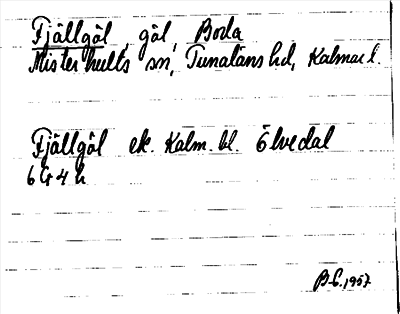 Fjällgöl, göl, Boda
Misterhults sn, Tunaläns hd, Kalmar l.
Fjällgöl ek. Kalm. bl. Ölvedal
6G4h
B.G. 1957